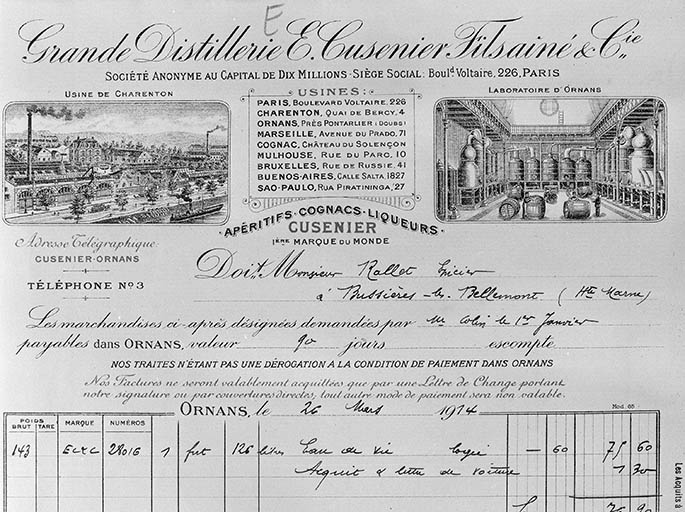 E
Grande Distillerie E. Cusenier Fils ainé & Cie
SOCIÉTÉ ANONYME AU CAPITAL DE DIX MILLIONS - SIÈGE SOCIAL: Bould Voltaire, 226, PARIS
USINE DE CHARENTON
USINES:
PARIS, BOULEVARD VOLTAIRE, 226
CHARENTON, QUAI DE BERCY, 4
ORNANS, PRÈS PONTARLIER (DOUBS)
MARSEILLE, AVENUE DU PRADO, 71
COGNAC, CHÂTEAU DU SOLENÇON
MULHOUSE, RUE DU PARC, 10
BRUXELLES, RUE DE RUSSIE, 41
BUENOS-AIRES, CALLE SALTA, 1827
SAO-PAULO, RUA PIRATININGA, 27
LABORATOIRE D'ORNANS
APÉRITIFS - COGNACS - LIQUEURS -
CUSENIER
1ÈRE MARQUE DU MONDE
Adresse Télégraphique
CUSENIER-ORNANS
TÉLÉPHONE No 3
Doit Monsieur Rollet
à Bussières-les-Bellemont (Hte Marne)
Les marchandises ci-après désignées demandées par Mr Colin le 1er Janvier
payables dans ORNANS, valeur 90 jours escompte
NOS TRAITES N'ÉTANT PAS UNE DÉROGATION A LA CONDITION DE PAIEMENT DANS ORNANS
Nos Factures ne seront valablement acquittées que par une Lettre de Change portant
notre signature ou par couvertures directes; tout autre mode de paiement sera non valable.
ORNANS, le 26 Mars 1914
Mod. 65
POIDS BRUT TARE MARQUE NUMÉROS
143 EC&C 28016 1 fut 126 litres Eau de vie logée - 60 75 60
Acquit & lettre de voiture 1 30
76 90
Les Acquits à